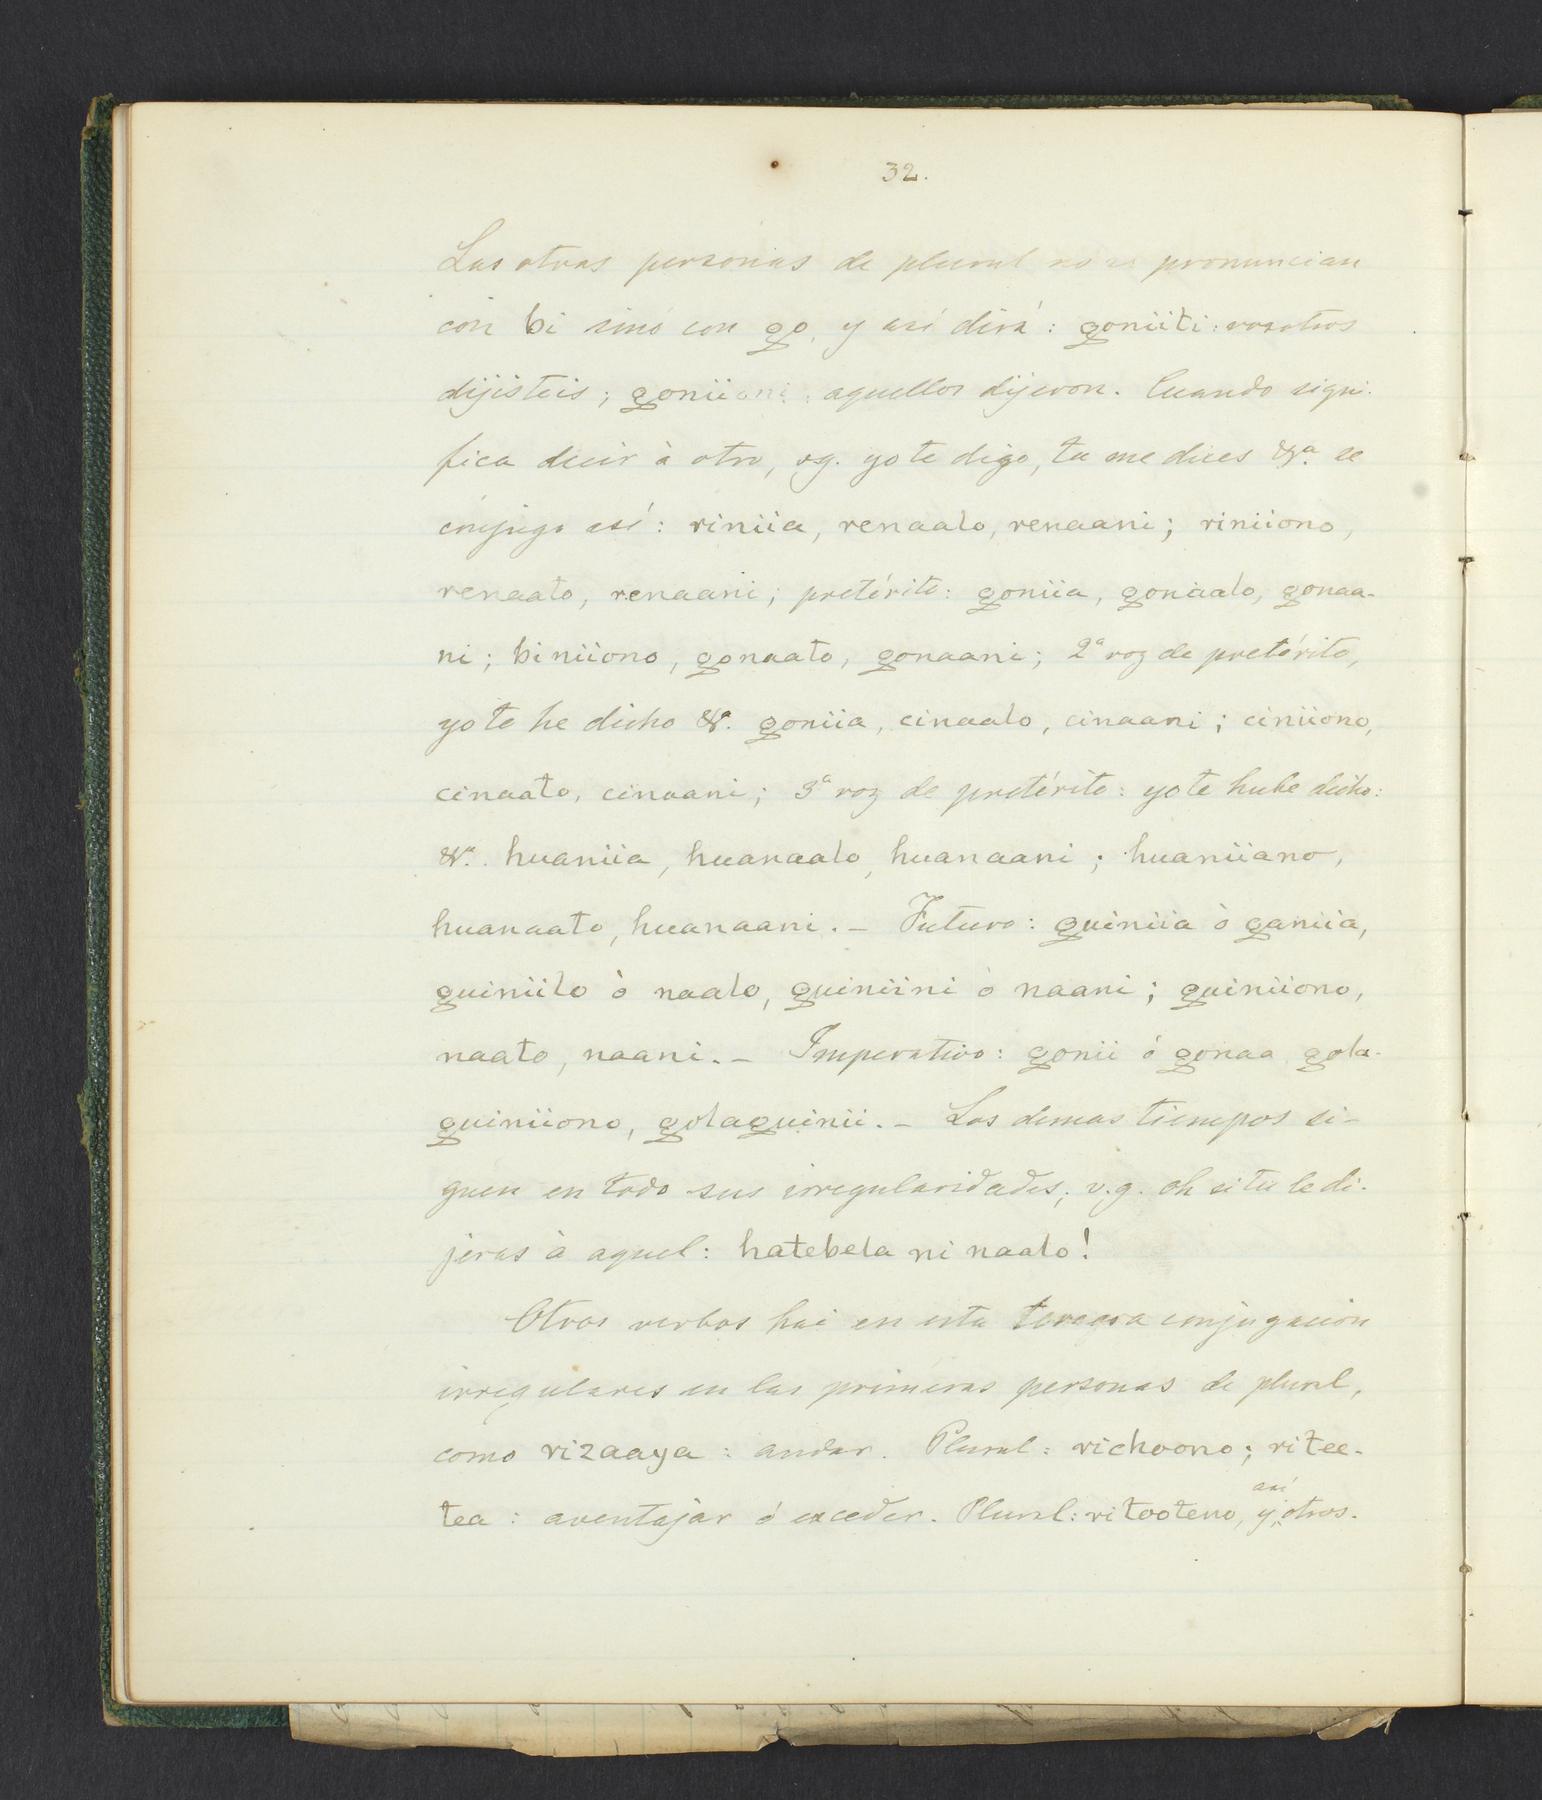 32.
Las otras personas de plural no se pronuncian
con bi sinó con go, y asi dirá: goniiti: vosotros
dijisteis; goniiani: aquellos dijeron. Cuando signi-
fica decir à otro, vg. yo te digo, tu me dices &a. se
conjuga asi: riniia, renaalo, renaani; riniiono,
renaato, renaani; pretérito: goniia, gonaalo, gonaa-
ni; biniiono, gonaato, gonaani; 2a voz de pretérito,
yo te he dicho &a. goniia, cinaalo, cinaani; ciniiono,
cinaato, cinaani; 3a voz de pretérito: yo te hube dicho:
&a. huaniia, huanaalo, huanaani; huaniiano,
huanaato, huanaani. - Futuro: guiniia ò ganiia,
guiniilo ò naalo, guiniini ò naani; guiniiono,
naato, naani. - Imperativo: gonii ó gonaa gola-
guiniiono, golaguinii. - Los demas tiempos si-
guen en todo sus irregularidades; v.g. oh si tu le di-
jeras à aquel: hatebela ni naalo!
Otros verbos hai en esta tercera conjugacion
irregulares en las primeras personas de plural,
como rizaaya: andar. Plural: richoono; ritee-
tea: aventajar ó exceder. Plural: ritooteno, y asi otros.